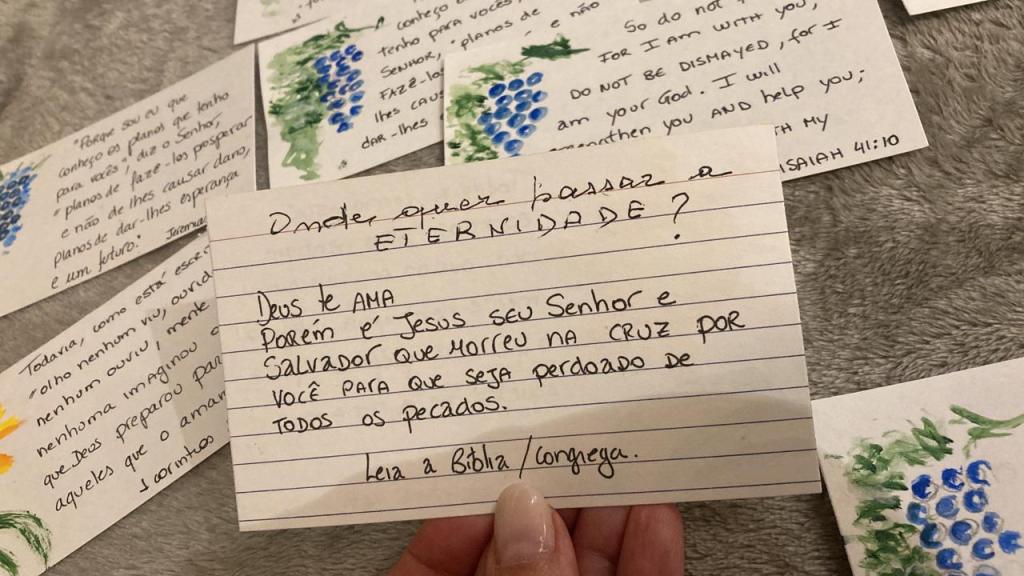 conheço
tenho para vocês
SENHOR, "planos de
FAZÊ-los
lhes caus
DAR-lhes
e não
So do not
FOR I AM WITH YOU;
DO NOT BE DISMAYED, for I
am your God. I will
you AND help you;
MY
ISAIAH 41:10
"Porque sou eu que
conheço os planos que tenho
para vocês", diz o Senhor,
"planos de fazê-los prosperar
e não de lhes causar dano,
planos de dar-lhes esperança
e um futuro." Jeremia
Todavia, como está escri
"olho nenhum viu, ouvido
nenhum ouviu, mente
nenhuma imaginou
que Deus preparou para
aqueles que o amam
1 Coríntios
Onde quer passar a
ETERNIDADE?
Deus te AMA
Porém é Jesus seu Senhor e
Salvador que morreu na CRUZ POR
VOCÊ PARA que seja perdoado de
TODOS os pecados.
Leia a Bíblia/Congrega.